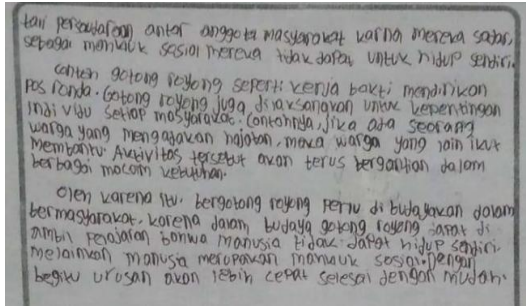 tali persaudaraan antar anggota masyarakat karna mereka sadar,
sebagai mahkluk sosial mereka tidak dapat untuk hidup sendiri.
Contoh gotong royong seperti kerja bakti mendirikan
Pos ronda. Gotong royong juga dilaksanakan untuk kepentingan
individu setiap masyarakat. Contohnya, jika ada seorang
warga yang mengadakan hajatan, maka warga yang lain ikut
membantu. Aktivitas tersebut akan terus bergantian dalam
berbagai macam kebutuhan.
Oleh karena itu, bergotong royong perlu di budayakan dalam
bermasyarakat. Karena dalam budaya gotong royong dapat di
ambil pelajaran bahwa manusia tidak dapat hidup sendiri
melainkan manusia merupakan mahkluk sosial. Dengan
begitu urusan akan lebih cepat selesai dengan mudah.